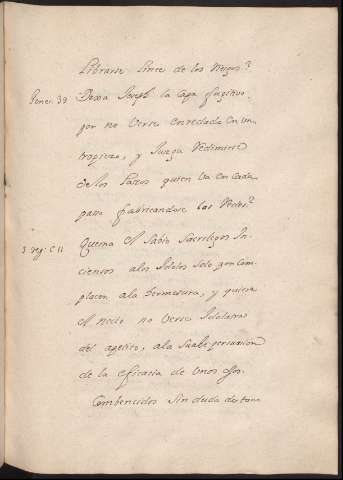 Librarse libre de los riesgos?
Genes. 39 Dexa Joseph la capa fugitivo
por no verse enredado en un
tropiezo, y juzga redimirse
de los lazos quien va en cada
paso fabricandose las redes?
3 reg. C 11 Quema el Sabio sacrilegos In-
ciensos a los Idolos solo por com-
placer a la hermosura, y quiere
el necio no verse Idolatra
del apetito, a la suabe persuasion
de la eficacia de unos ojos.
Combencidos sin duda de